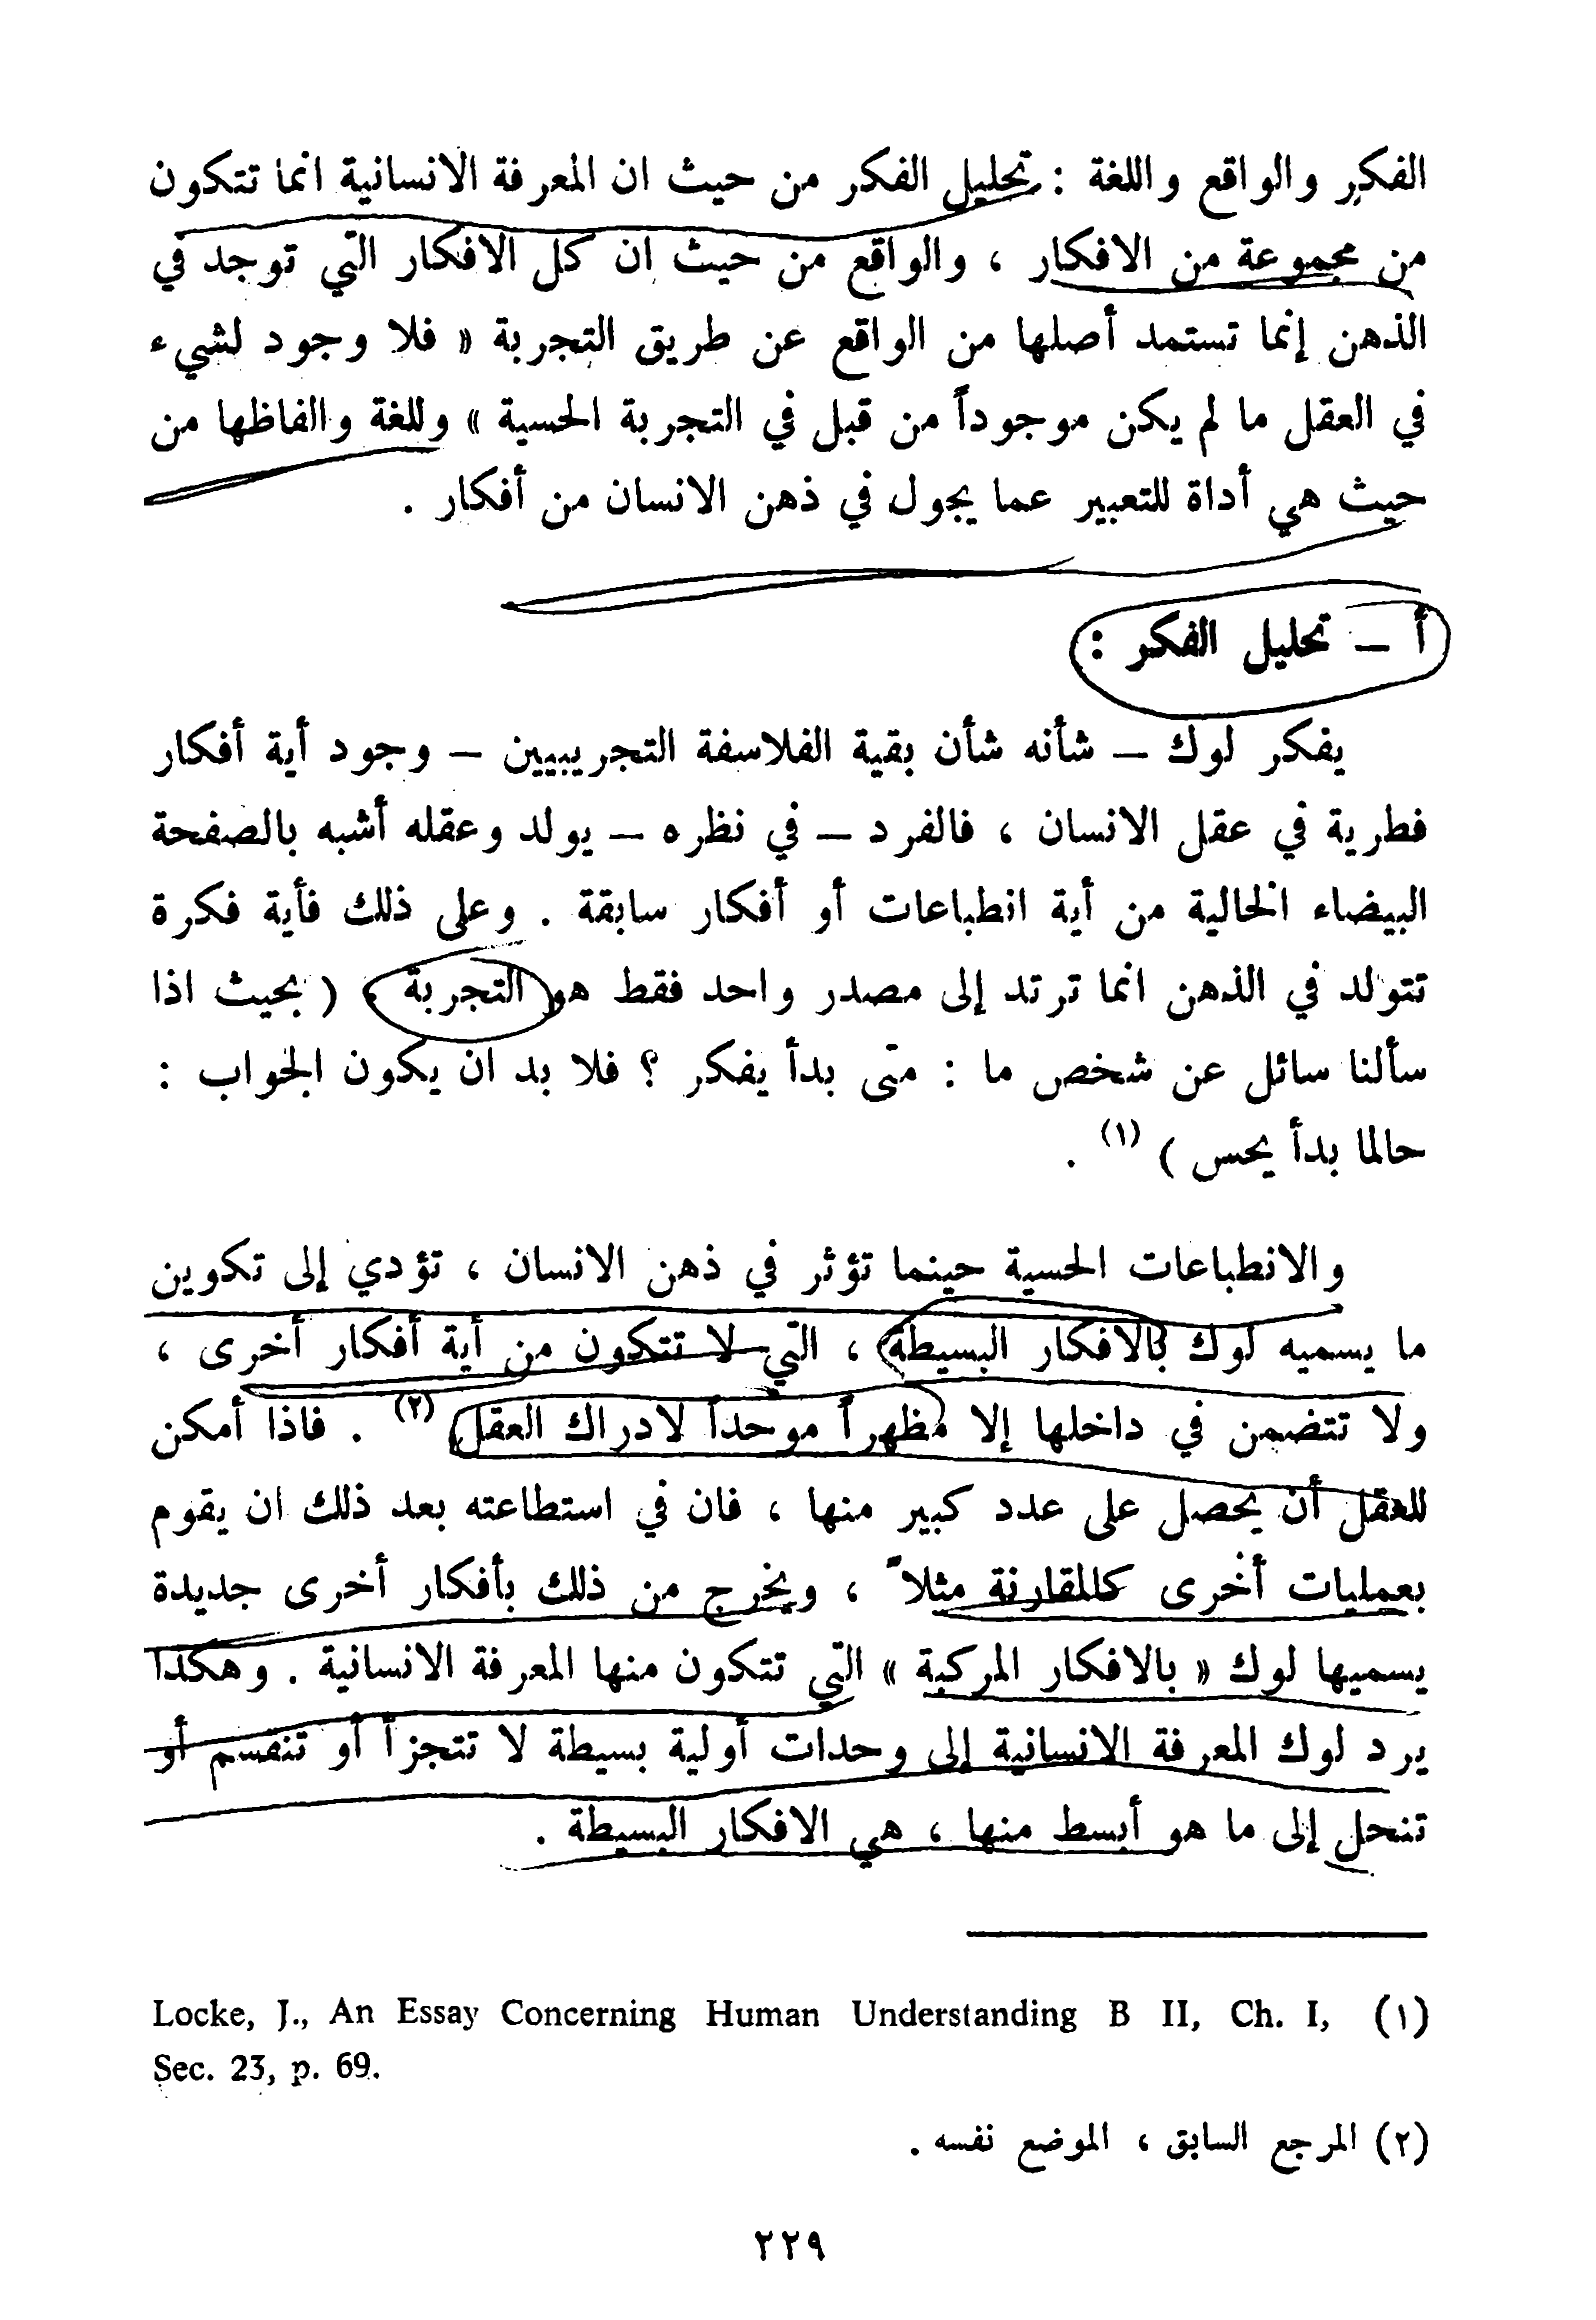 الفكر والواقع واللغة : تحليل الفكر من حيث ان المعرفة الانسانية انما تتكون
من مجموعة من الافكار ، والواقع من حيث ان كل الافكار التي توجد في
الذهن إنما تستمد أصلها من الواقع عن طريق التجربة « فلا وجود لشيء
في العقل ما لم يكن موجوداً من قبل في التجربة الحسية » وللغة والفاظها من
حيث هي أداة للتعبير عما يجول في ذهن الانسان من أفكار .
أ – تحليل الفكر :
يفكر لوك – شأنه شأن بقية الفلاسفة التجريبيين – وجود أية أفكار
فطرية في عقل الانسان ، فالفرد – في نظره – يولد وعقله أشبه بالصفحة
البيضاء الخالية من أية انطباعات أو أفكار سابقة . وعلى ذلك فأية فكرة
تتولد في الذهن انما ترتد إلى مصدر واحد فقط هو التجربة ، ( بحيث اذا
سألنا سائل عن شخص ما : متى بدأ يفكر ؟ فلا بد ان يكون الجواب :
حالما بدأ يحس ) (١) .
والانطباعات الحسية حينما تؤثر في ذهن الانسان ، تؤدي إلى تكوين
ما يسميه لوك بالافكار البسيطة ، التي لا تتكون من أية أفكار أخرى ،
ولا تتضمن في داخلها إلا مظهراً موحداً لادراك العقل (٢) . فاذا أمكن
للعقل أن يحصل على عدد كبير منها ، فان في استطاعته بعد ذلك ان يقوم
بعمليات أخرى كالمقارنة مثلاً ، ويخرج من ذلك بأفكار أخرى جديدة
يسميها لوك « بالافكار المركبة » التي تتكون منها المعرفة الانسانية . وهكذا
يرد لوك المعرفة الانسانية إلى وحدات أولية بسيطة لا تتجزأ أو تنقسم أو
تنحل إلى ما هو أبسط منها ، هي الافكار البسيطة .
(١) Locke, J., An Essay Concerning Human Understanding B II, Ch. I,
Sec. 23, p. 69.
(٢) المرجع السابق ، الموضع نفسه .
٢٢٩